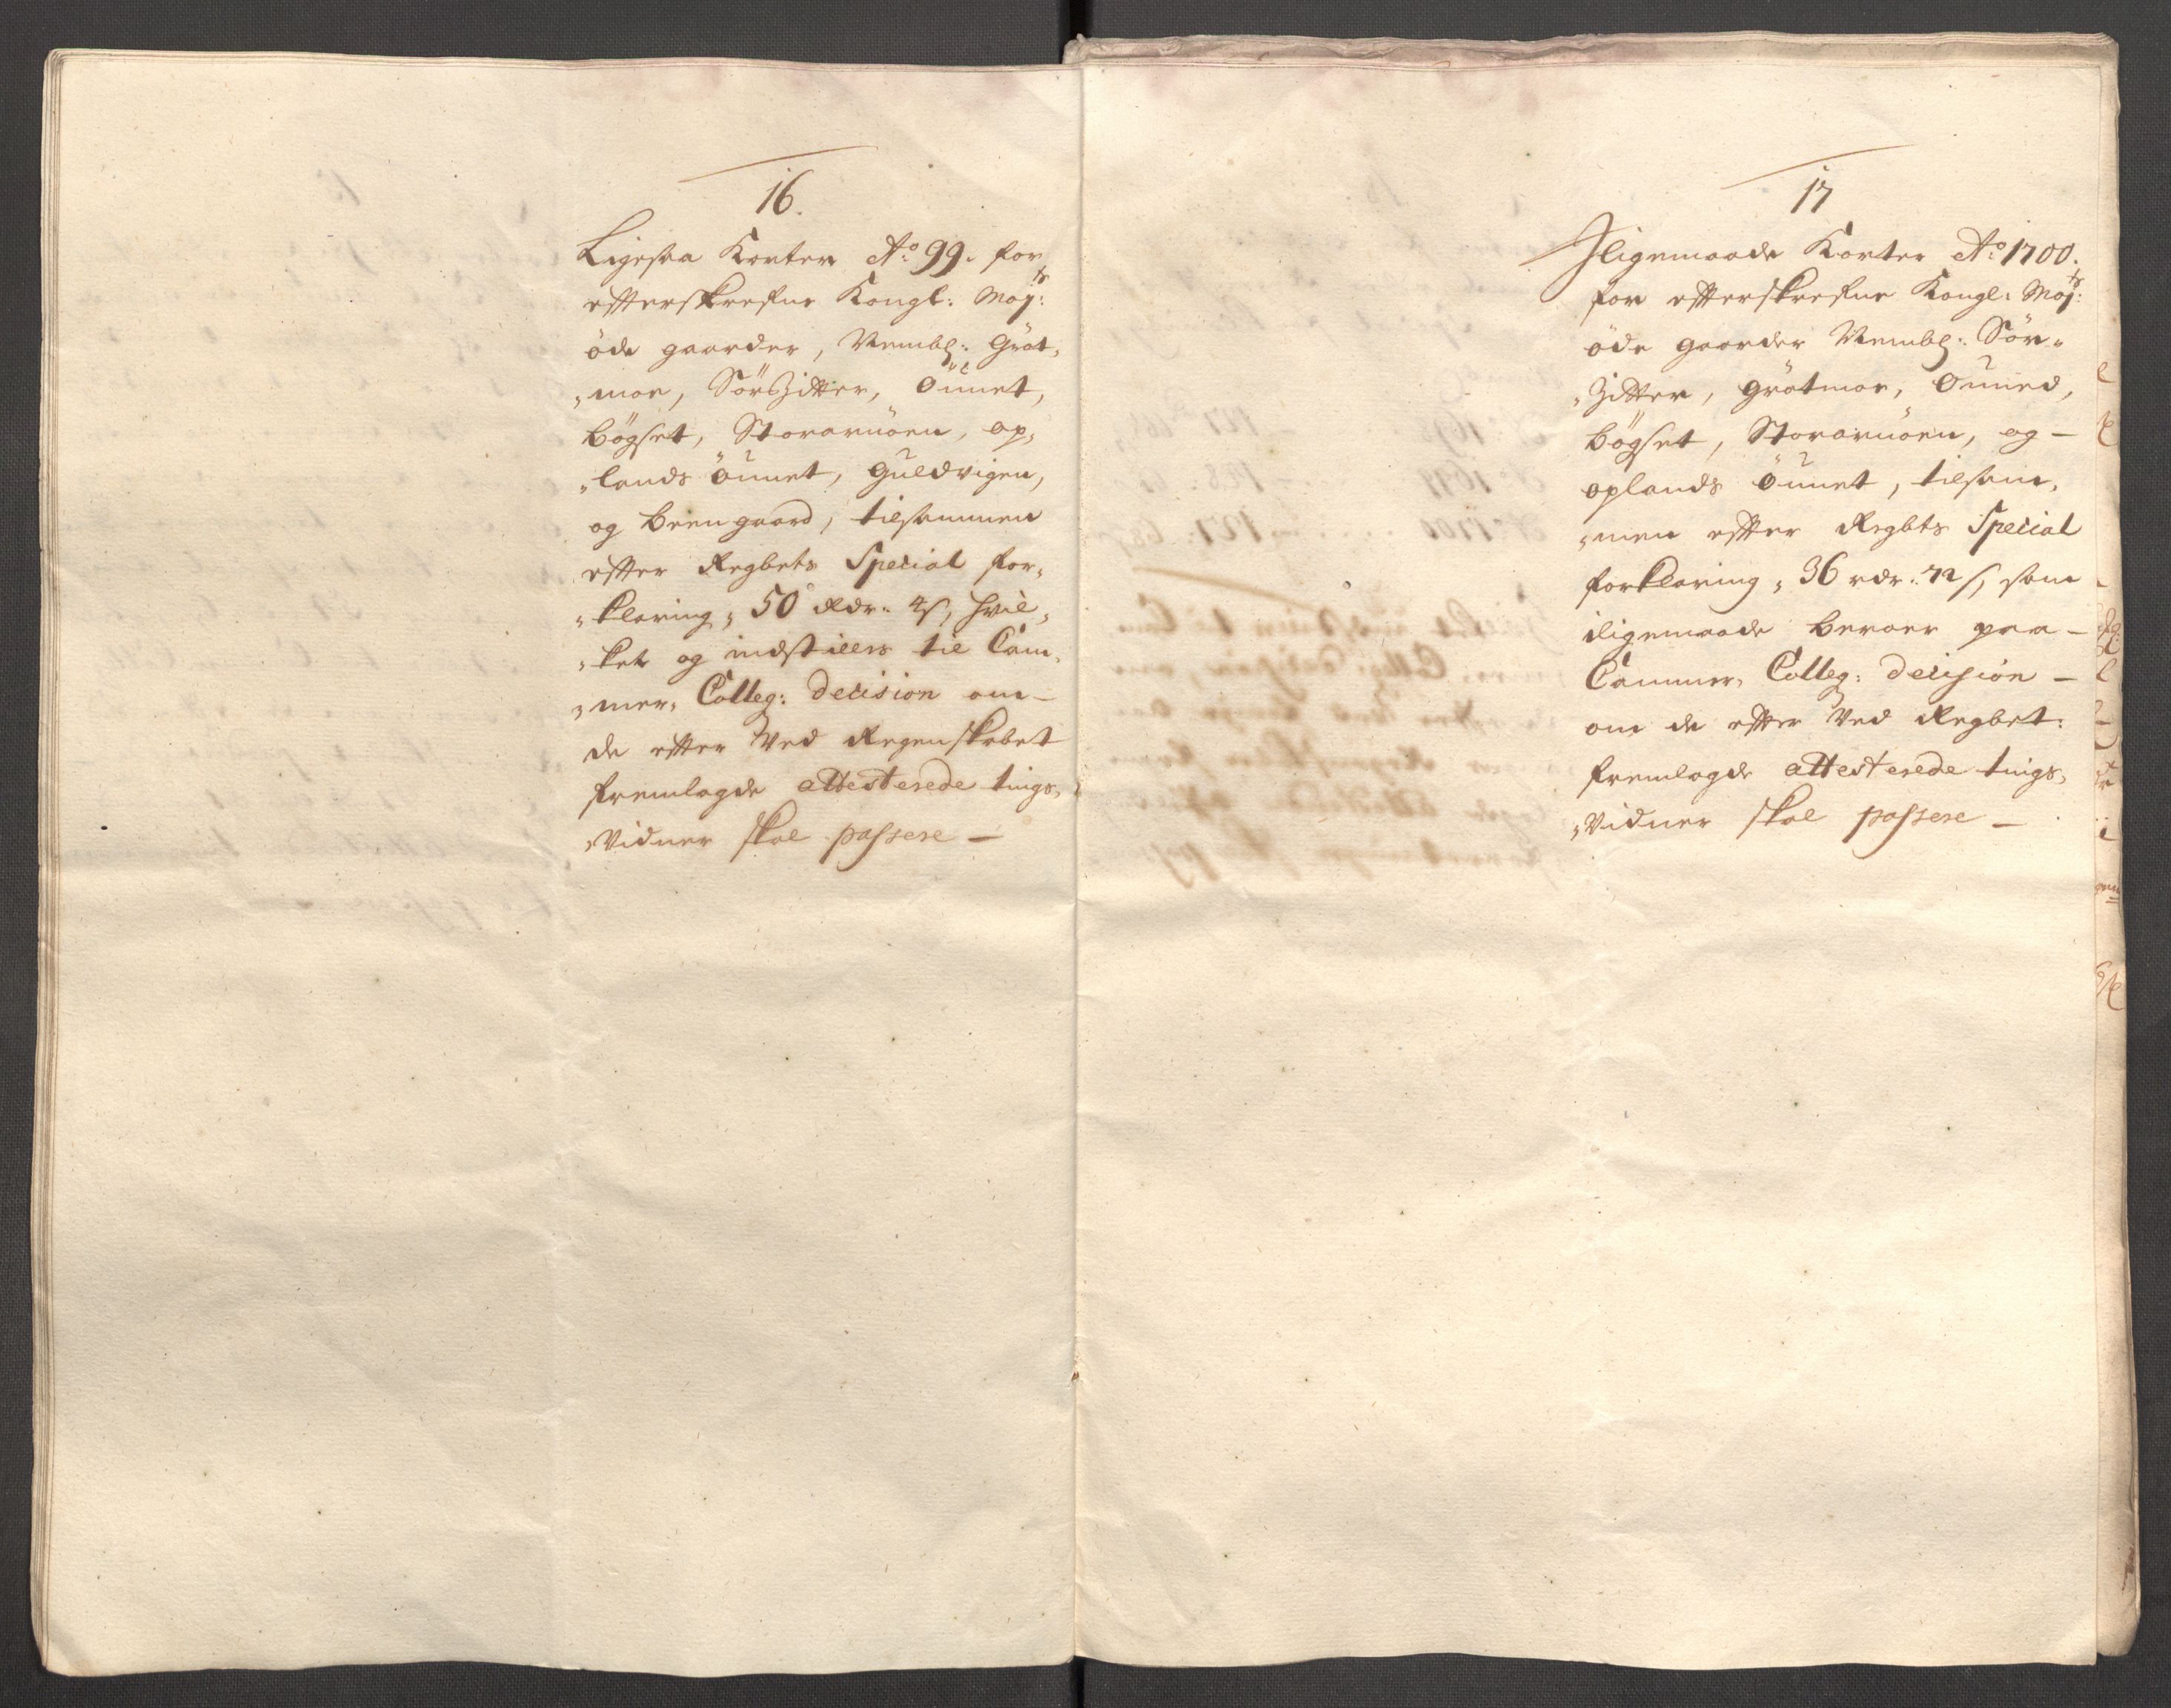 16.
Ligesaa Korter Ao: 99. for
efterskrefne Kongl: Maj:ts
öde gaarder, Nembl: Gröt,
,moe, Sörßitter, Öunet,
Bögset, Storaruöen, op,
,lands Öunet, Guldvigen,
og Beengaard, tilsammen
efter Regbets Special for,
,klaring, 50 Rdr: 4 s, hvil,
,ket og indstilles til Cam,
,mer, Colleg: Decision om –
de efter Ved Regenskabet
fremlagde attesterede tings,
,Vidner skal passere –
17
Jligemaade Korter Ao: 1700.
for efterskrefne Kongl: Maj:ts
öde gaarder Nembl: Sör,
,Zitter, Grötmoe, Ouned,
Bögset, Storaruöen, og –
oplands Öunet, tilsam,
,men efter Regbts Special
forklaring, 36 rdr: 72 s, som
iligemaade beroer paa –
Cammer, Colleg: Decision –
om de efter Ved Regbet:
fremlagde attesterede tings,
,Vidner skal passere –